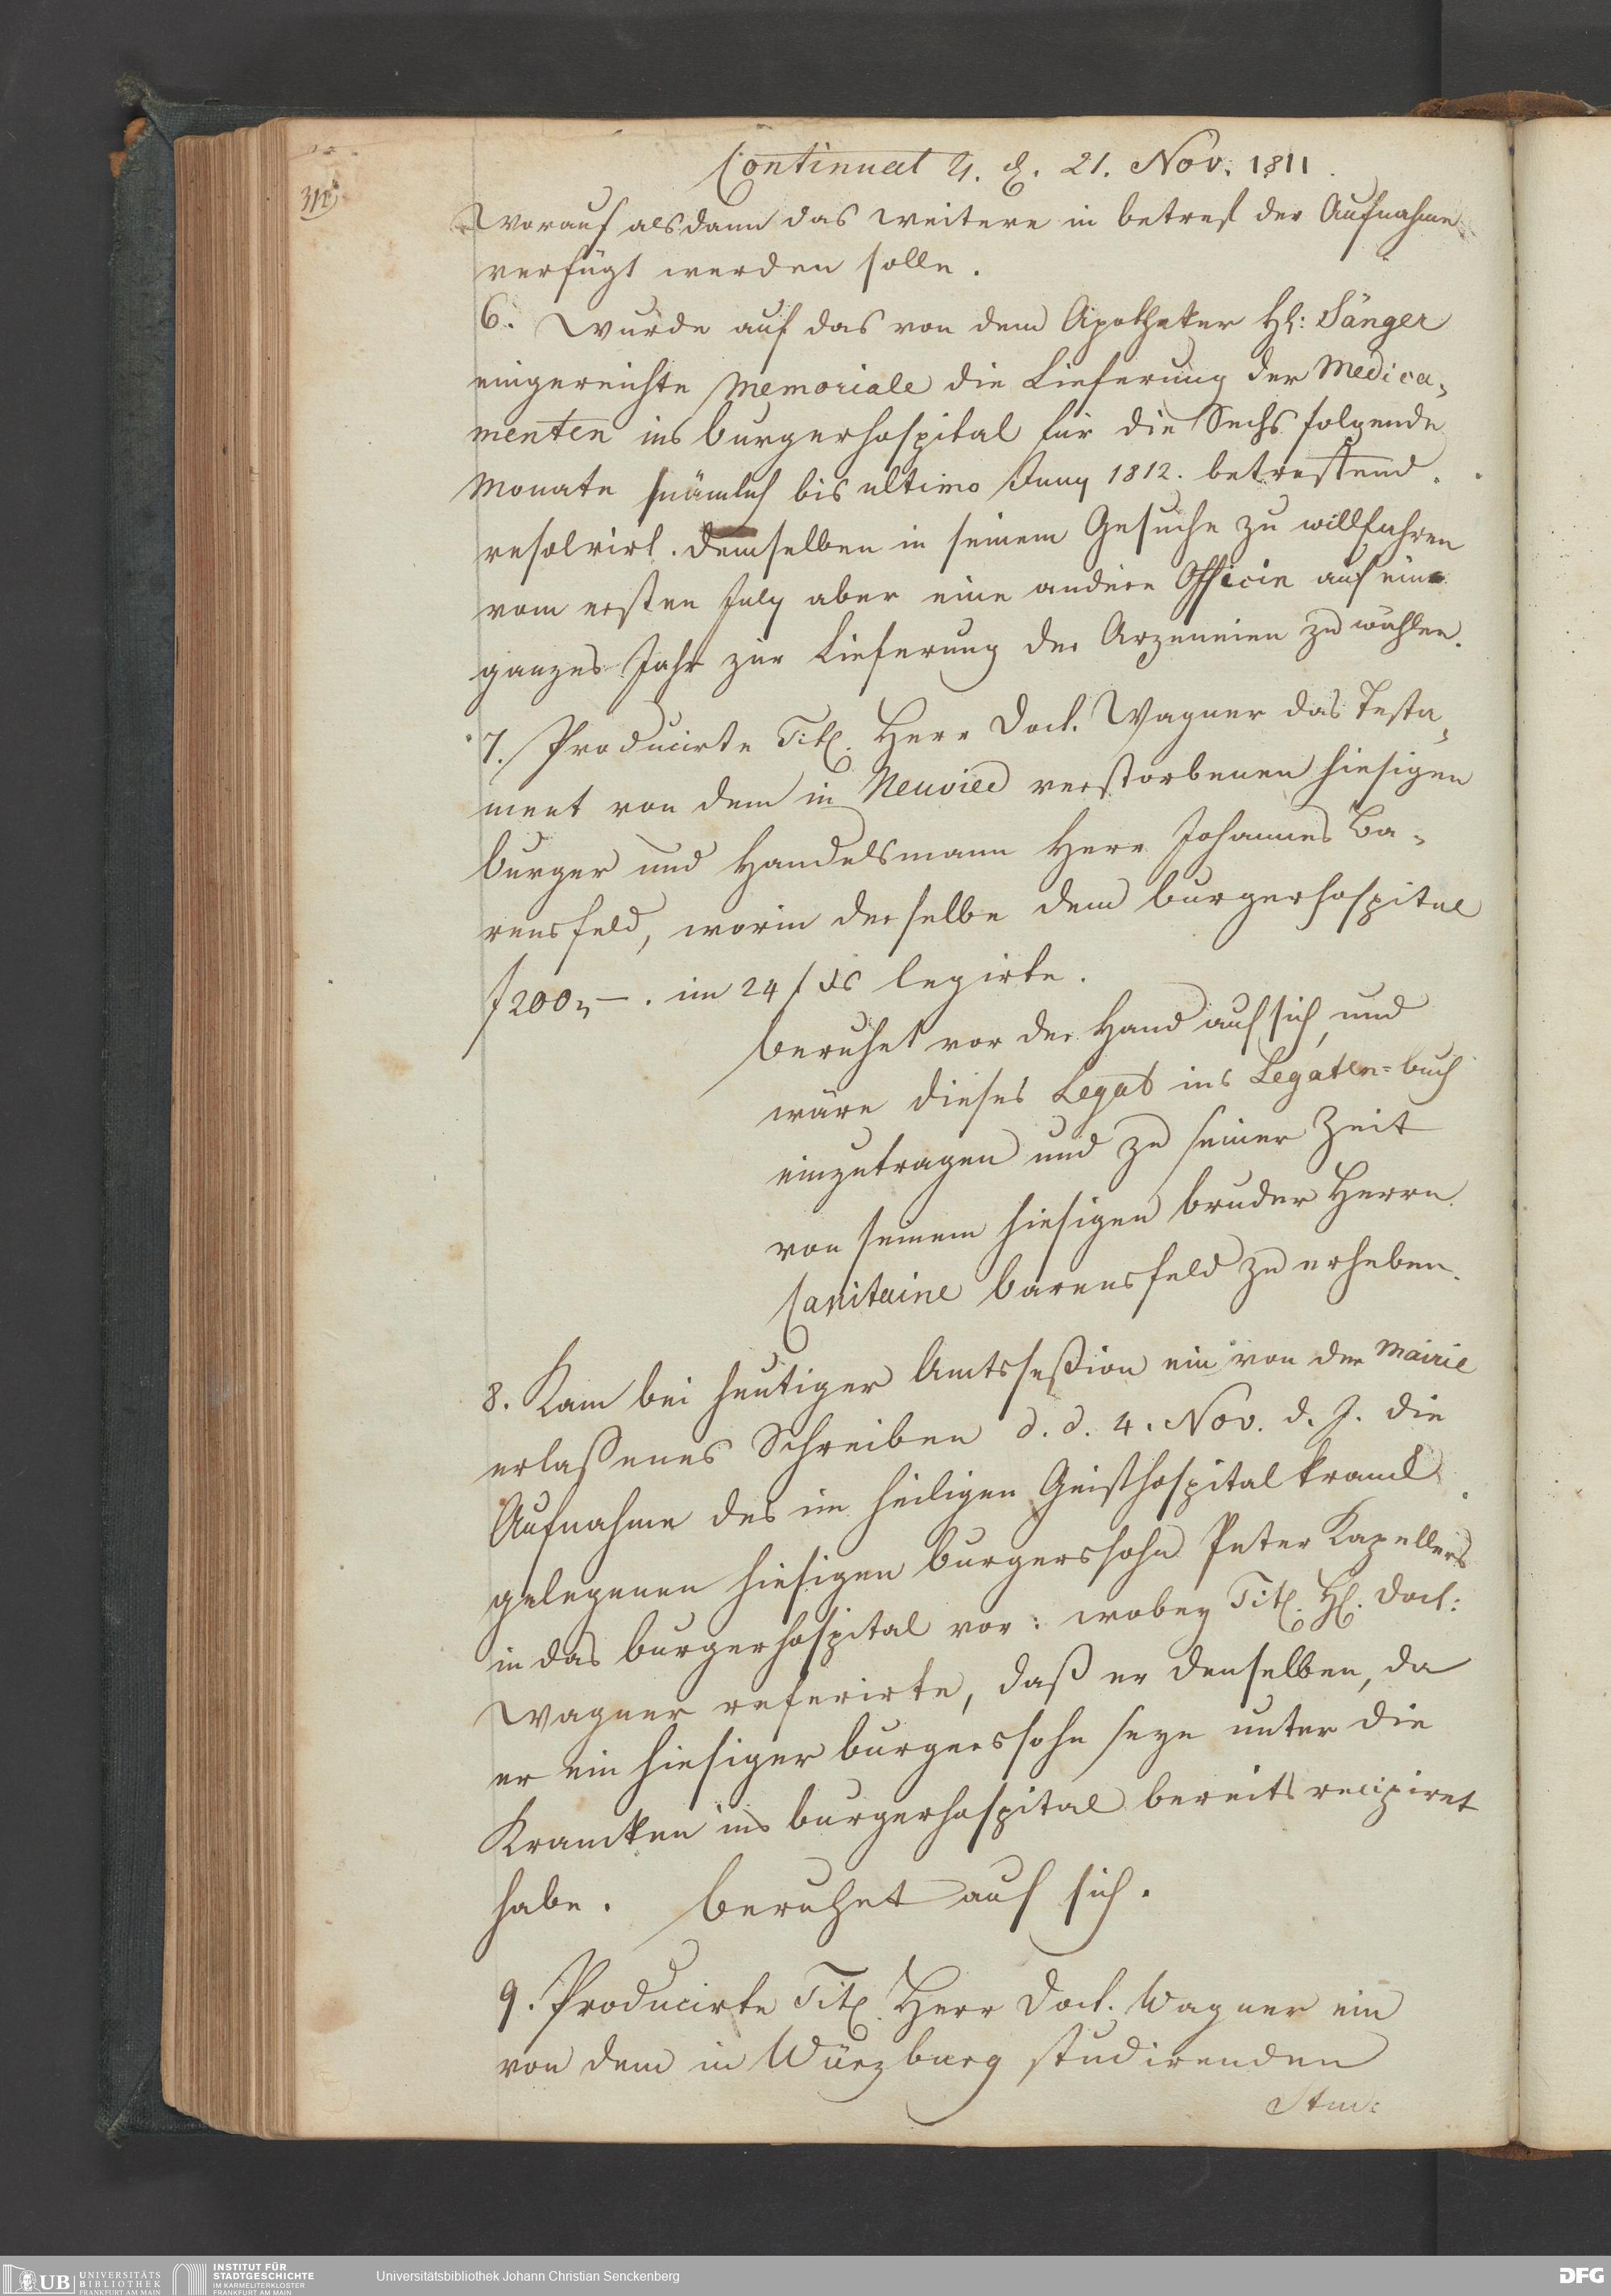 Continuat ♃. d. 21. Nov. 1811.
worauf alsdann das weitere in betref der Aufnahme
verfügt werden solle.
6. Wurde auf das von dem Apotheker H: Sänger
eingereichte Memoriale die Lieferung der Medica„
menten ins burgerhospital für die Sechs folgende
Monate nämlich bis ultimo Juny 1812. betreffend.
resolvirt. demselben in seinem Gesuche zu willfahren
vom ersten July aber eine andere Officin auf ein
ganzes Jahr zur Lieferung der Arzeneien zu wählen.
7. Producirte Tit. Herr Doct. Wagner das Testa„
ment von dem in Neuvied verstorbenen hiesigen
burger und Handelsmann Herr Johannes Ba„
rensfeld, worin derselbe dem burgerhospital
f 200„ —. im 24 f legirte.
beruhet vor der Hand auf sich, und
wäre dieses Legat ins Legaten=buch
einzutragen und zu seiner Zeit
von seinem hiesigen bruder Herrn
Capitaine barensfeld zu erheben.
8. Kam bei heutiger Amtsseßion ein von der Mairie
erlaßenes Schreiben d. d. 4. Nov. d. J. die
Aufnahme des im heiligen Geisthospital kranck
gelegenen hiesigen burgerssohn Peter Kapellers
in das burgerhospital vor: wobey Tit. H. Doct:
Wagner referirte, daß er denselben, da
er ein hiesiger burgerssohn seye unter die
Krancken ins burgerhospital bereits recipiret
habe. beruhet auf sich.
9. Producirte Tit. Herr Doct. Wagner ein
von dem in Würzburg studirenden
Stud:
UB UNIVERSITÄTS
BIBLIOTHEK
FRANKFURT AM MAIN
INSTITUT FÜR
STADTGESCHICHTE
IM KARMELITERKLOSTER
FRANKFURT AM MAIN
Universitätsbibliothek Johann Christian Senckenberg
DFG